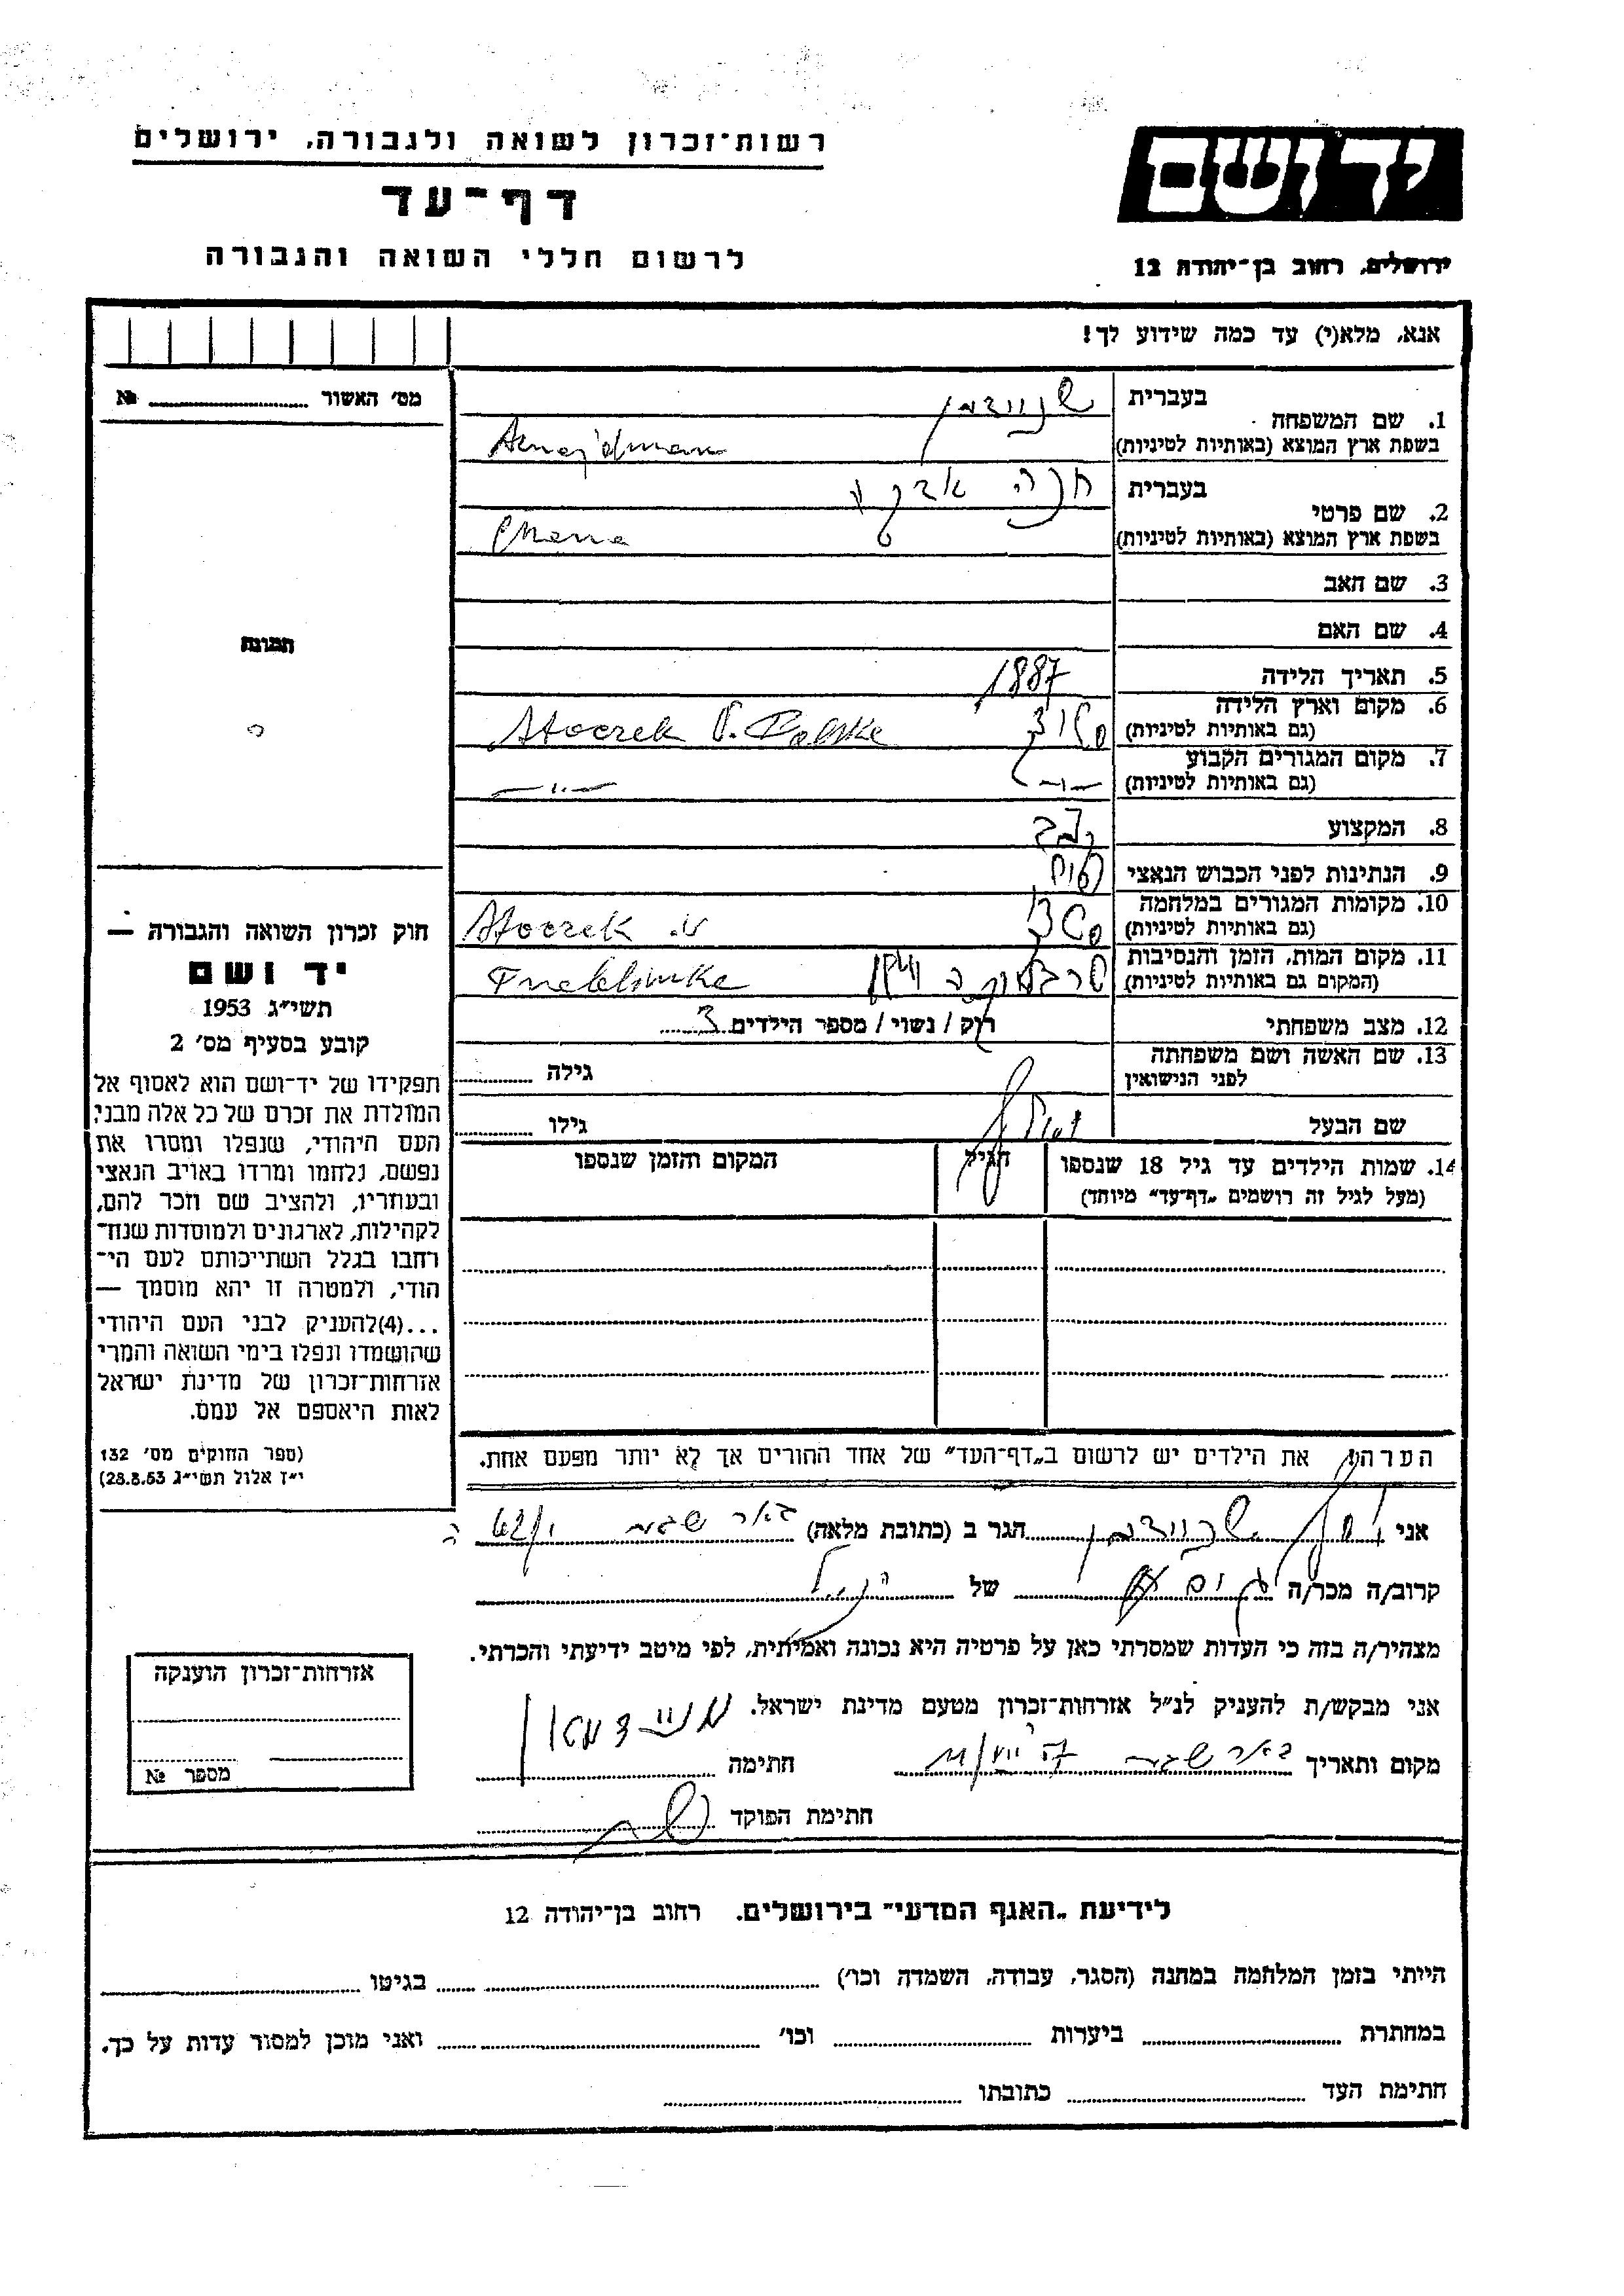 רשות־זכרון לשואה ולגבורה, ירושלים
דף־עד
לרשום חללי השואה והגבורה
יד ושם
ירושלים, רחוב בן־יהודה 12
אנא, מלא(י) עד כמה שידוע לך!
מס׳ האשור № 
תמונה
1. שם המשפחה
בעברית שנוידמן
בשפת ארץ המוצא (באותיות לטיניות)
2. שם פרטי
בעברית חנה
בשפת ארץ המוצא (באותיות לטיניות) Chana
3. שם האב
4. שם האם
5. תאריך הלידה 1887
6. מקום וארץ הלידה
(גם באותיות לטיניות) Stoczek
7. מקום המגורים הקבוע
(גם באותיות לטיניות) —״—
8. המקצוע
9. הנתינות לפני הכבוש הנאצי
10. מקומות המגורים במלחמה
(גם באותיות לטיניות) Stoczek
11. מקום המות, הזמן והנסיבות
(המקום גם באותיות לטיניות) טרבלינקה
12. מצב משפחתי רוק / נשוי / מספר הילדים 3
13. שם האשה ושם משפחתה
לפני הנישואין
גילה
שם הבעל
גילו
14. שמות הילדים עד גיל 18 שנספו
(מעל לגיל זה רושמים „דף־עד״ מיוחד)
הגיל
המקום והזמן שנספו
חוק זכרון השואה והגבורה —
יד ושם
תשי״ג 1953
קובע בסעיף מס׳ 2
תפקידו של יד־ושם הוא לאסוף אל
המולדת את זכרם של כל אלה מבני
העם היהודי, שנפלו ומסרו את
נפשם, נלחמו ומרדו באויב הנאצי
ובעוזריו, ולהציב שם וזכר להם,
לקהילות, לארגונים ולמוסדות שנח־
רבו בגלל השתייכותם לעם הי־
הודי, ולמטרה זו יהא מוסמך —
...(4)להעניק לבני העם היהודי
שהושמדו ונפלו בימי השואה והמרי
אזרחות־זכרון של מדינת ישראל
לאות היאספם אל עמם.
(ספר החוקים מס׳ 132
י״ז אלול תשי״ג 28.8.53)
הערה: את הילדים יש לרשום ב„דף־העד״ של אחד ההורים אך לא יותר מפעם אחת.
אני יוסף שנוידמן הגר ב (כתובת מלאה) באר שבע
קרוב/ה מכר/ה של הנ״ל
מצהיר/ה בזה כי העדות שמסרתי כאן על פרטיה היא נכונה ואמיתית, לפי מיטב ידיעתי והכרתי.
אני מבקש/ת להעניק לנ״ל אזרחות־זכרון מטעם מדינת ישראל.
מקום ותאריך באר שבע חתימה
חתימת הפוקד
אזרחות־זכרון הוענקה
מספר №
לידיעת „האגף המדעי״ בירושלים. רחוב בן־יהודה 12
הייתי בזמן המלחמה במחנה (הסגר, עבודה, השמדה וכו׳) בגיטו
במחתרת ביערות וכו׳ ואני מוכן למסור עדות על כך.
חתימת העד כתובתו